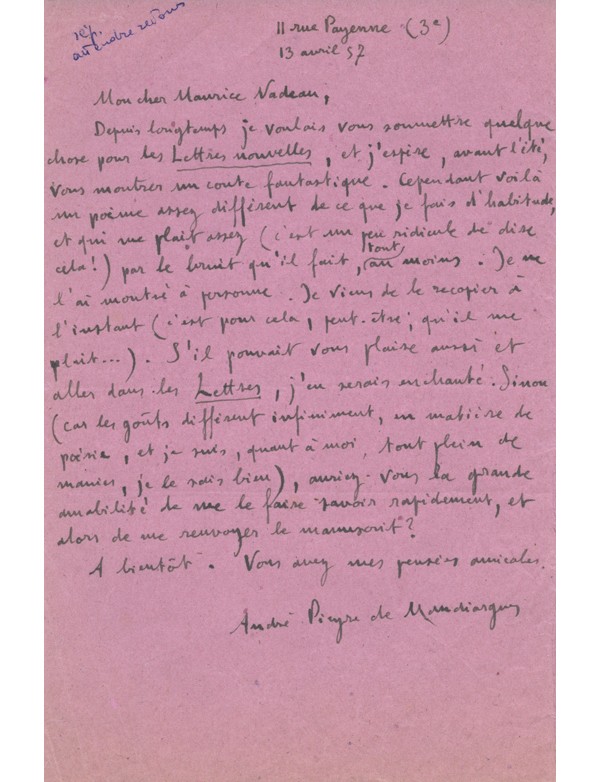 rép.
attendre retour
11 rue Payenne (3e)
13 avril 57
Mon cher Maurice Nadeau,
Depuis longtemps je voulais vous soumettre quelque
chose pour les Lettres nouvelles, et j'espère, avant l'été,
vous montrer un conte fantastique. Cependant voilà
un poème assez différent de ce que je fais d'habitude,
et qui me plaît assez (c'est un peu ridicule de dire
cela!) par le bruit qu'il fait, tout au moins. Je ne
l'ai montré à personne. Je viens de le recopier à
l'instant (c'est pour cela, peut-être, qu'il me
plaît...). S'il pouvait vous plaire aussi et
aller dans les Lettres, j'en serais enchanté. Sinon
(car les goûts diffèrent infiniment, en matière de
poésie, et je suis, quant à moi, tout plein de
manies, je le sais bien), auriez-vous la grande
amabilité de me le faire savoir rapidement, et
alors de me renvoyer le manuscrit?
A bientôt. Vous avez mes pensées amicales.
André Pieyre de Mandiargues